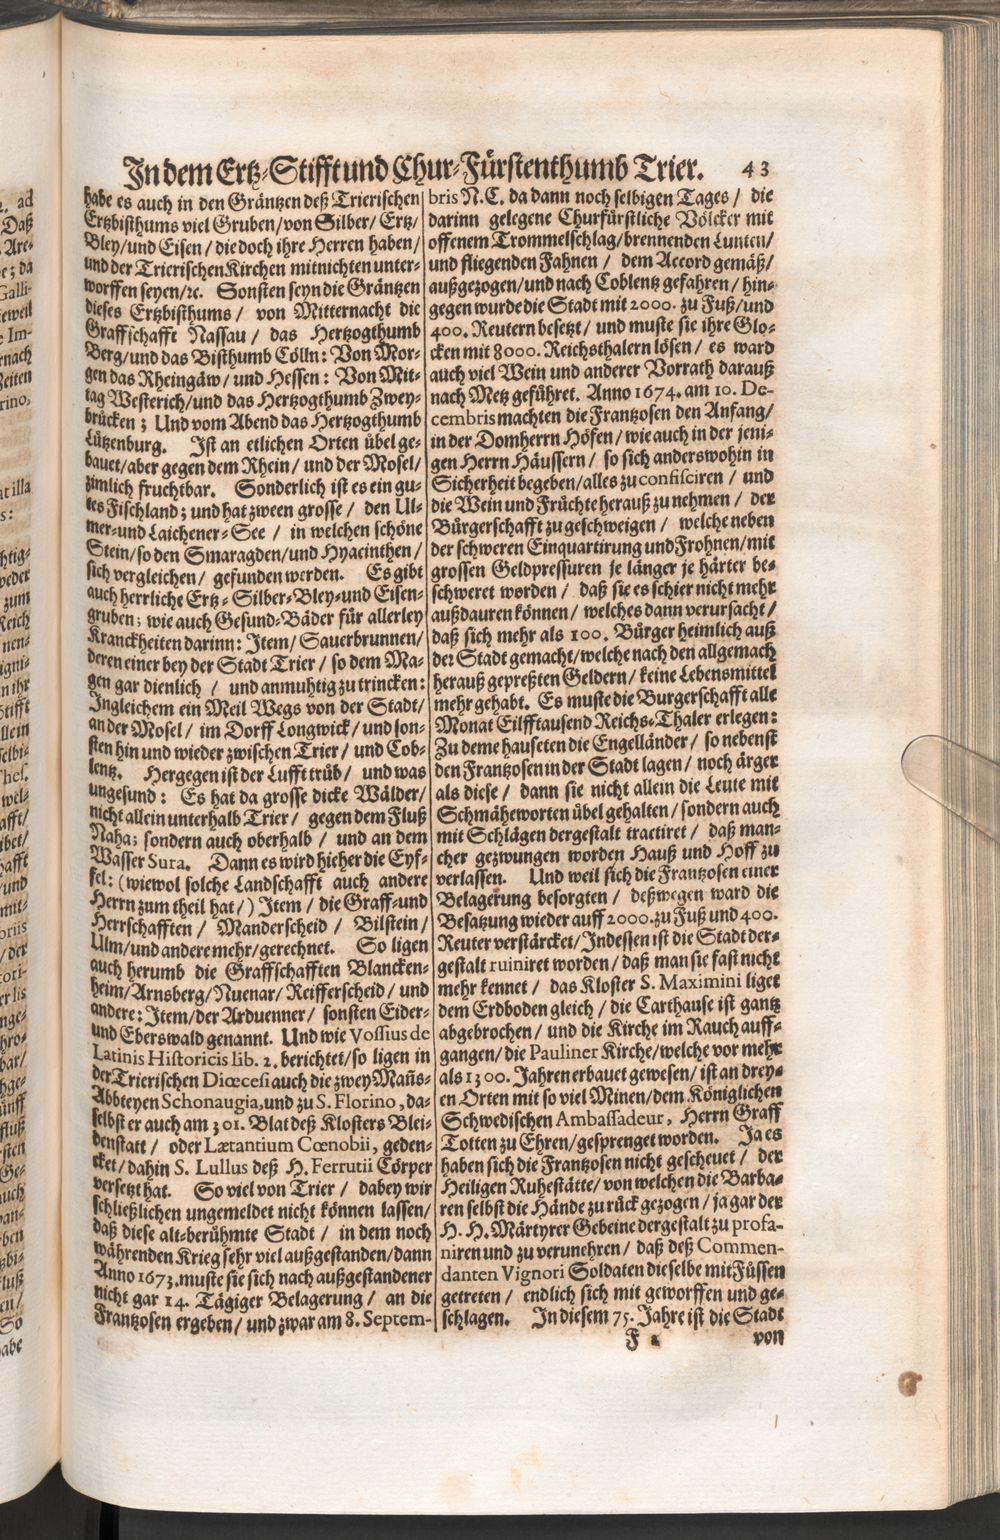 In dem Ertz-Stifft und Chur-Fürstenthumb Trier. 43
habe es auch in den Gräntzen deß Trierischen
Ertzbisthums viel Gruben/von Silber/ Ertz/
Bley/und Eisen/ die doch ihre Herren haben/
und der Trierischen Kirchen mitnichten unter-
worffen seyen/ꝛc. Sonsten seyn die Gräntzen
dieses Ertzbisthums/ von Mitternacht die
Graffschafft Nassau/ das Hertzogthumb
Berg/und das Bisthumb Cölln: Von Mor-
gen das Rheingäw/und Hessen: Von Mit-
tag Westerich/und das Hertzogthumb Zwey-
brücken; Und vom Abend das Hertzogthumb
Lützenburg. Ist an etlichen Orten übel ge-
bauet/aber gegen dem Rhein/ und der Mosel/
zimlich fruchtbar. Sonderlich ist es ein gu-
tes Fischland; und hat zween grosse/ den Ul-
mer-und Laichener-See/ in welchen schöne
Stein/so den Smaragden/und Hyacinthen/
sich vergleichen/ gefunden werden. Es gibt
auch herrliche Ertz-Silber-Bley-und Eisen-
gruben; wie auch Gesund-Bäder für allerley
Kranckheiten darinn: Item/Sauerbrunnen/
deren einer bey der Stadt Trier/ so dem Ma-
gen gar dienlich/ und anmuhtig zu trincken:
Ingleichem ein Meil Wegs von der Stadt/
an der Mosel/ im Dorff Longwick/ und son-
sten hin und wieder zwischen Trier/ und Cob-
lentz. Hergegen ist der Lufft trüb/ und was
ungesund: Es hat da grosse dicke Wälder/
nicht allein unterhalb Trier/ gegen dem Fluß
Naha; sondern auch oberhalb/ und an dem
Wasser Sura. Dann es wird hieher die Eyf-
fel: (wiewol solche Landschafft auch andere
Herrn zum theil hat/) Item/ die Graff-und
Herrschafften/ Manderscheid/ Bilstein/
Ulm/und andere mehr/gerechnet. So ligen
auch herumb die Graffschafften Blancken-
heim/Arnsberg/Nuenar/Reifferscheid/ und
andere: Item/der Arduenner/ sonsten Eider-
und Eberswald genannt. Und wie Vossius de
Latinis Historicis lib. 2. berichtet/so ligen in
der Trierischen Diœcesi auch die zwey Mañs-
Abbteyen Schonaugia, und zu S. Florino, da-
selbst er auch am 301. Blat deß Klosters Blei-
denstatt/ oder Lætantium Cœnobii, geden-
cket/dahin S. Lullus deß H. Ferrutii Cörper
versetzt hat. So viel von Trier/ dabey wir
schließlichen ungemeldet nicht können lassen/
daß diese alt-berühmte Stadt/ in dem noch
währenden Krieg sehr viel außgestanden/dann
Anno 1673. muste sie sich nach außgestandener
nicht gar 14. Tägiger Belagerung/ an die
Frantzosen ergeben/ und zwar am 8. Septem-
bris N.C. da dann noch selbigen Tages/ die
darinn gelegene Churfürstliche Völcker mit
offenem Trommelschlag/brennenden Lunten/
und fliegenden Fahnen/ dem Accord gemäß/
außgezogen/und nach Coblentz gefahren/ hin-
gegen wurde die Stadt mit 2000. zu Fuß/und
400. Reutern besetzt/ und muste sie ihre Glo-
cken mit 8000. Reichsthalern lösen/ es ward
auch viel Wein und anderer Vorrath darauß
nach Metz geführet. Anno 1674. am 10. De-
cembris machten die Frantzosen den Anfang/
in der Domherrn Höfen/ wie auch in der jeni-
gen Herrn Häussern/ so sich anderswohin in
Sicherheit begeben/alles zu confisciren/ und
die Wein und Früchte herauß zu nehmen/ der
Bürgerschafft zu geschweigen/ welche neben
der schweren Einquartirung und Frohnen/mit
grossen Geldpressuren je länger je härter be-
schweret worden/ daß sie es schier nicht mehr
außdauren können/ welches dann verursacht/
daß sich mehr als 100. Bürger heimlich auß
der Stadt gemacht/welche nach den allgemach
herauß gepreßten Geldern/ keine Lebensmittel
mehr gehabt. Es muste die Burgerschafft alle
Monat Eilfftausend Reichs-Thaler erlegen:
Zu deme hauseten die Engelländer/ so nebenst
den Frantzosen in der Stadt lagen/ noch ärger
als diese/ dann sie nicht allein die Leute mit
Schmäheworten übel gehalten/sondern auch
mit Schlägen dergestalt tractiret/ daß man-
cher gezwungen worden Hauß und Hoff zu
verlassen. Und weil sich die Frantzosen einer
Belagerung besorgten/ deßwegen ward die
Besatzung wieder auff 2000. zu Fuß und 400.
Reuter verstärcket/Indessen ist die Stadt der-
gestalt ruiniret worden/ daß man sie fast nicht
mehr kennet/ das Kloster S. Maximini liget
dem Erdboden gleich/ die Carthause ist gantz
abgebrochen/ und die Kirche im Rauch auff-
gangen/die Pauliner Kirche/welche vor mehr
als 1300. Jahren erbauet gewesen/ ist an drey-
en Orten mit so viel Minen/dem Königlichen
Schwedischen Ambassadeur, Herrn Graff
Totten zu Ehren/gesprenget worden. Ja es
haben sich die Frantzosen nicht gescheuet/ der
Heiligen Ruhestätte/von welchen die Barba-
ren selbst die Hände zu rück gezogen/ja gar der
H. H. Märtyrer Gebeine dergestalt zu profa-
niren und zu verunehren/ daß deß Commen-
danten Vignori Soldaten dieselbe mit Füssen
getreten/ endlich sich mit geworffen und ge-
schlagen. In diesem 75. Jahre ist die Stadt
F 2 von